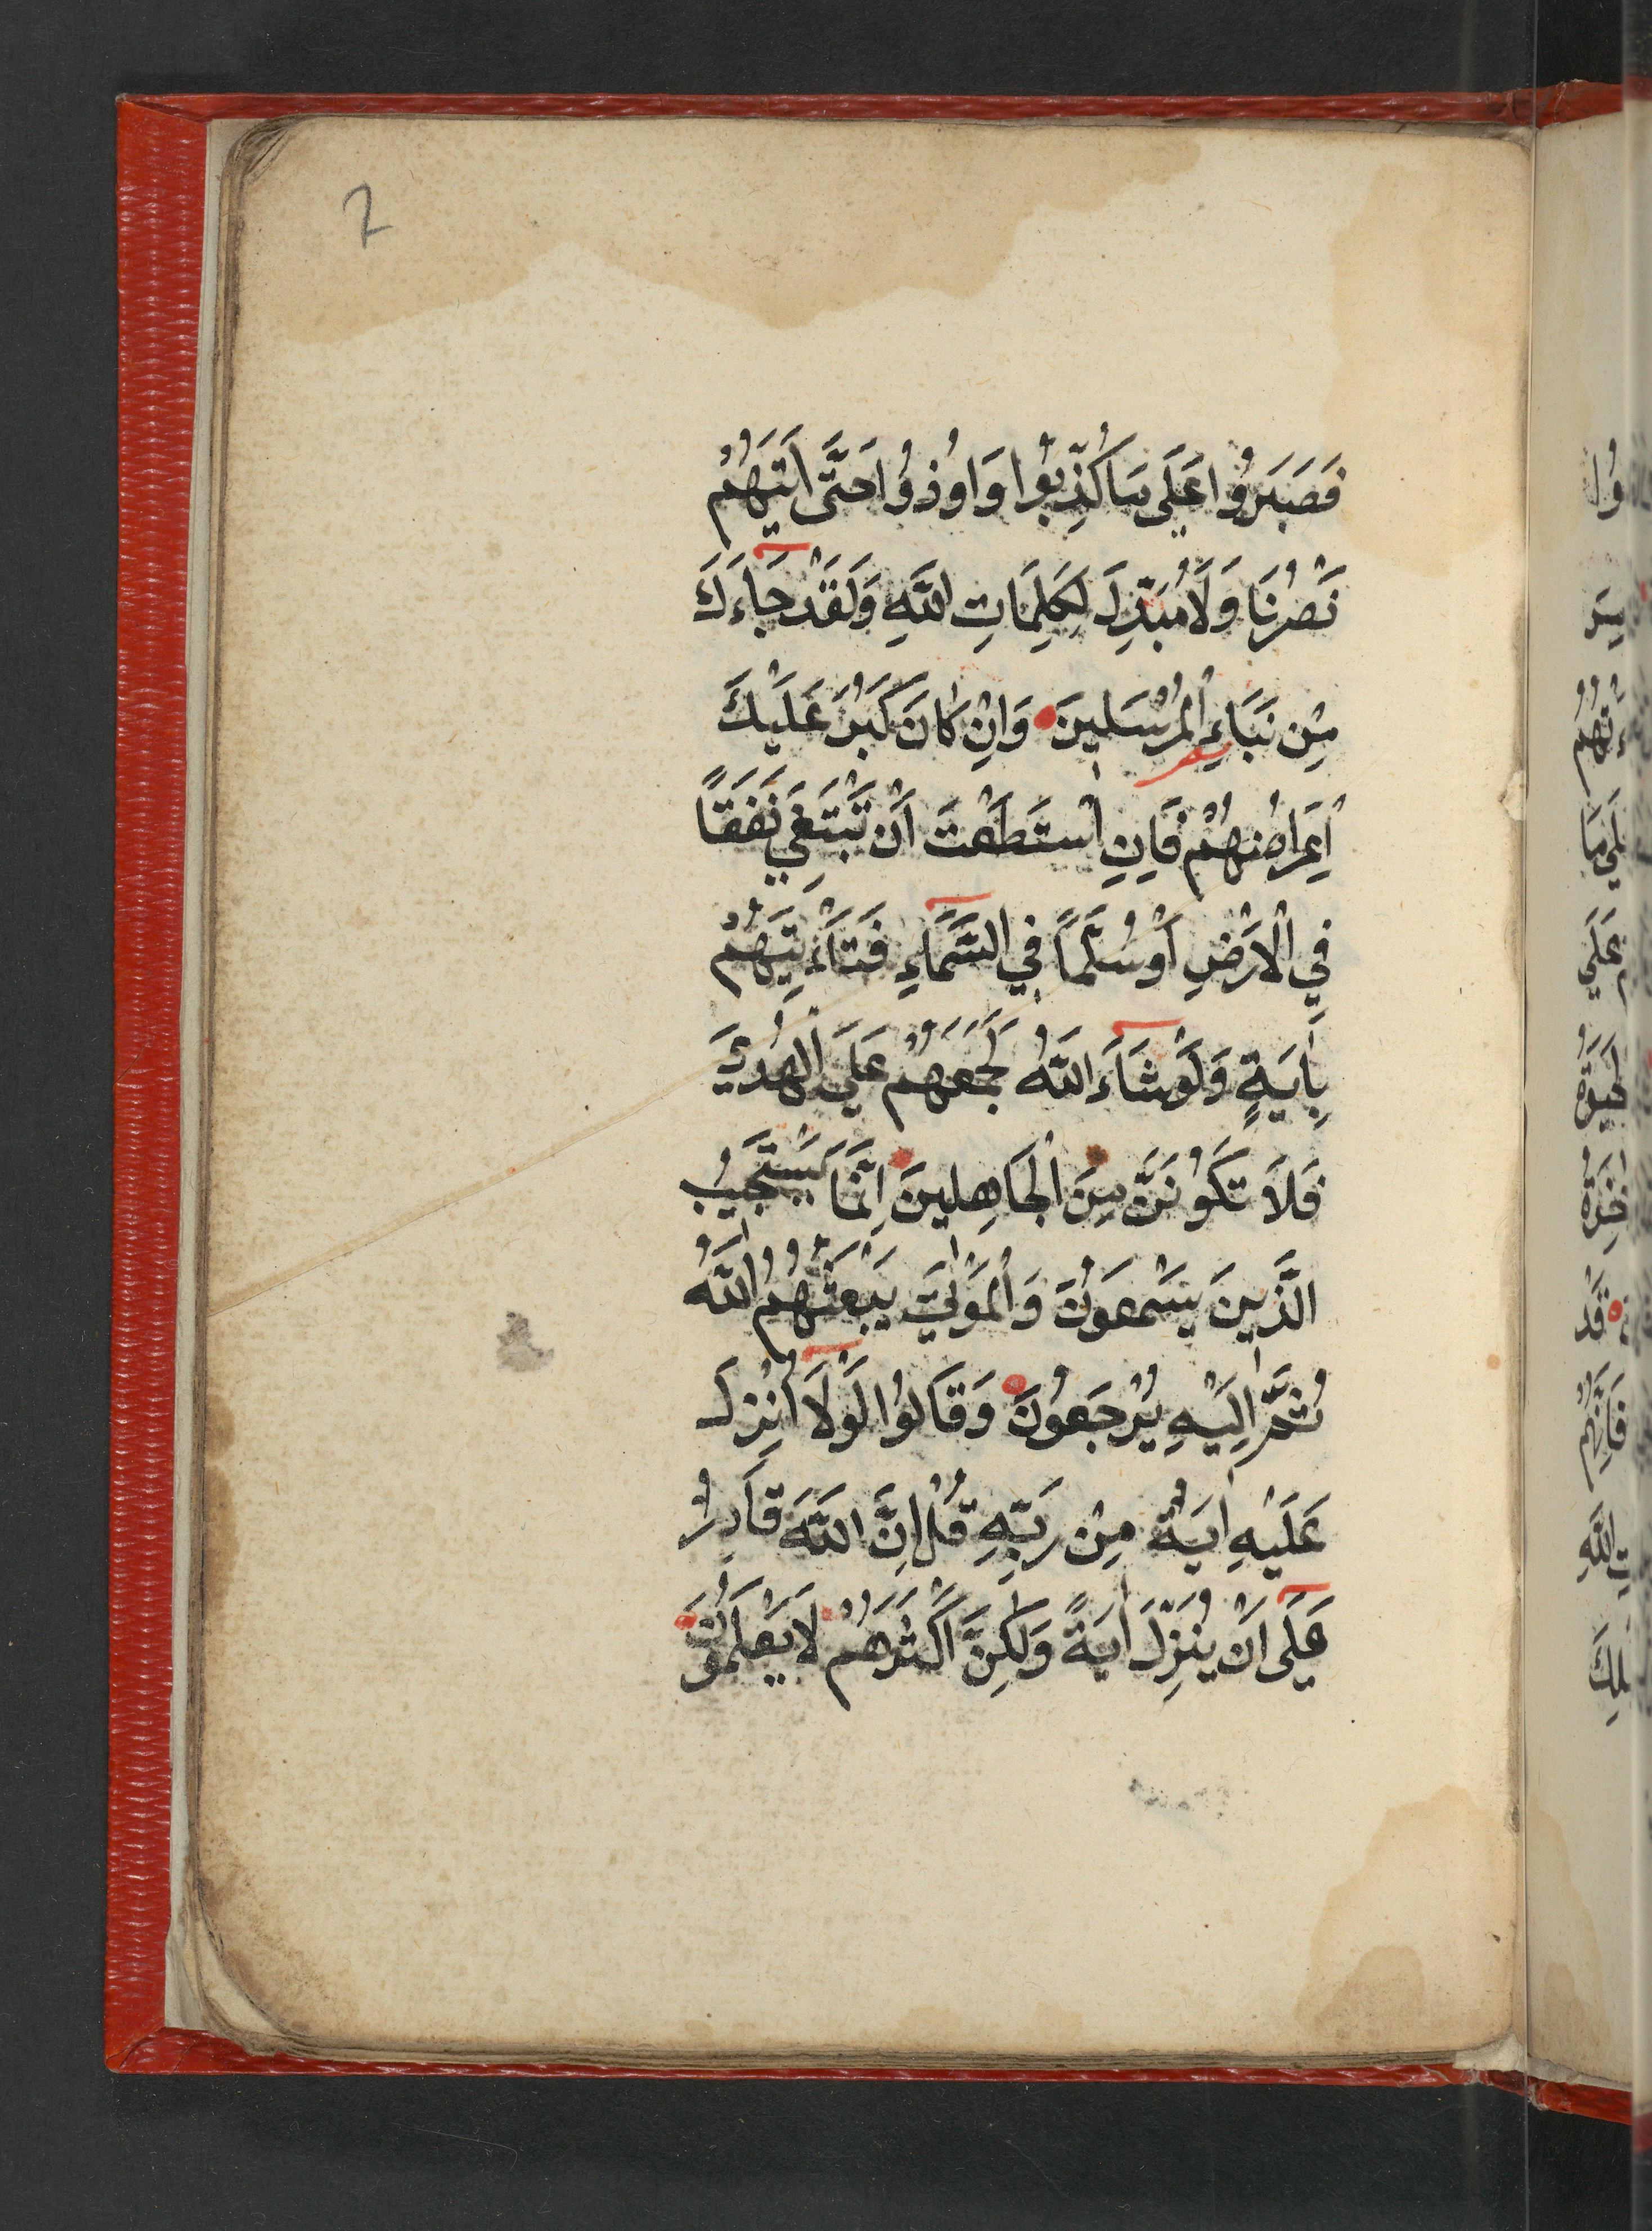 2
فَصَبَرُوا عَلَى مَا كُذِّبُوا وَاُوذُوا حَتَّى اَتَيهُمْ
نَصْرُنَا وَلَا مُبَدِّلَ لِكَلِمَاتِ اللَّهِ وَلَقَدْ جَاءَكَ
مِنْ نَبَاءِ الْمُرْسَلِينَ وَاِنْ كَانَ كَبُرَ عَلَيْكَ
اِعْرَاضُهُمْ فَاِنِ اسْتَطَعْتَ اَنْ تَبْتَغِيَ نَفَقًا
فِي الْاَرْضِ اَوْ سُلَّمًا فِي السَّمَاءِ فَتَاْتِيَهُمْ
بِاٰيَةٍ وَلَوْ شَاءَ اللَّهُ لَجَمَعَهُمْ عَلَى الْهُدٰي
فَلَا تَكُونَنَّ مِنَ الْجَاهِلِينَ اِنَّمَا يَسْتَجِيبُ
الَّذِينَ يَسْمَعُونَ وَالْمَوْتٰي يَبْعَثُهُمُ اللَّهُ
ثُمَّ اِلَيْهِ يُرْجَعُونَ وَقَالُوا لَوْلَا اُنْزِلَ
عَلَيْهِ اٰيَةٌ مِنْ رَبِّهِ قُلْ اِنَّ اللَّهَ قَادِرٌ
عَلَى اَنْ يُنَزِّلَ اٰيَةً وَلٰكِنَّ اَكْثَرَهُمْ لَا يَعْلَمُونَ